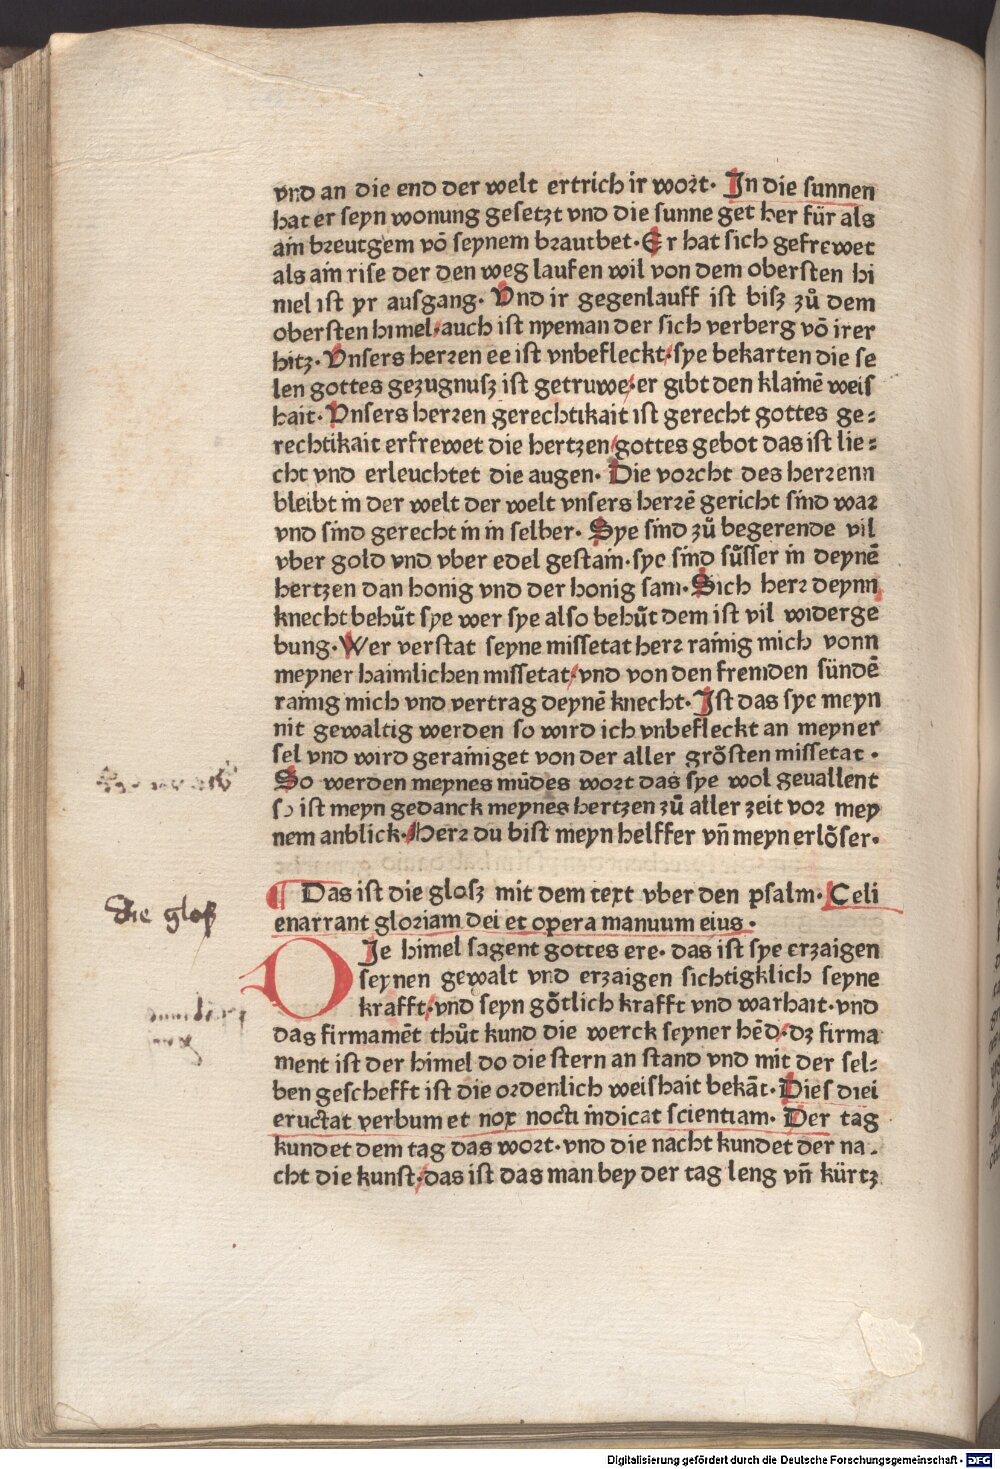 vnd an die end der welt ertrich ir wort. In die sunnen
hat er seyn wonung gesetzt vnd die sunne get her für als
ain breutgem vō seynem brautbet. Er hat sich gefrewet
als ain rise der den weg laufen wil von dem obersten hi
mel ist yr ausgang. Vnd ir gegenlauff ist bisz zů dem
obersten himel. auch ist nyeman der sich verberg vō irer
hitz. Vnsers herren ee ist vnbefleckt. sye bekarten die se
len gottes gezugnusz ist getruwe. er gibt den klainē weis
hait. Vnsers herren gerechtikait ist gerecht gottes ge⸗
rechtikait erfrewet die hertzen gottes gebot das ist lie⸗
cht vnd erleuchtet die augen. Die vorcht des herrenn
bleibt in der welt der welt vnsers herrē gericht sind war
vnd sind gerecht in in selber. Sye sind zů begerende vil
vber gold vnd vber edel gestain. sye sind sůsser in deynē
hertzen dan honig vnd der honig sam. Sich herr deynn
knecht behůt sye wer sye also behůt dem ist vil widerge
bung. Wer verstat seyne missetat herr rainig mich vonn
meyner haimlichen missetat. vnd von den fremden sündē
rainig mich vnd vertrag deynē knecht. Ist das sye meyn
nit gewaltig werden so wird ich vnbefleckt an meyner
sel vnd wird gerainiget von der aller grősten missetat .
So werden meynes můdes wort das sye wol geuallent
so ist meyn gedanck meynes hertzen zů aller zeit vor mey
nem anblick. Herr du bist meyn helffer vn̄ meyn erlőser.
Die glosz
¶ Das ist die glosz mit dem text vber den psalm. Celi
enarrant gloriam dei et opera manuum eius .
DIe himel sagent gottes ere. das ist sye erzaigen
seynen gewalt vnd erzaigen sichtigklich seyne
krafft. vnd seyn gőtlich krafft vnd warhait. vnd
das firmamēt thůt kund die werck seyner hēd. dz firma
ment ist der himel do die stern an stand vnd mit der sel⸗
ben geschefft ist die ordenlich weishait bekāt. Dies diei
eructat verbum et nox nocti indicat scientiam. Der tag
kundet dem tag das wort. vnd die nacht kundet der na⸗
cht die kunst. das ist das man bey der tag leng vn̄ kürtz
Digitalisierung gefördert durch die Deutsche Forschungsgemeinschaft - DFG